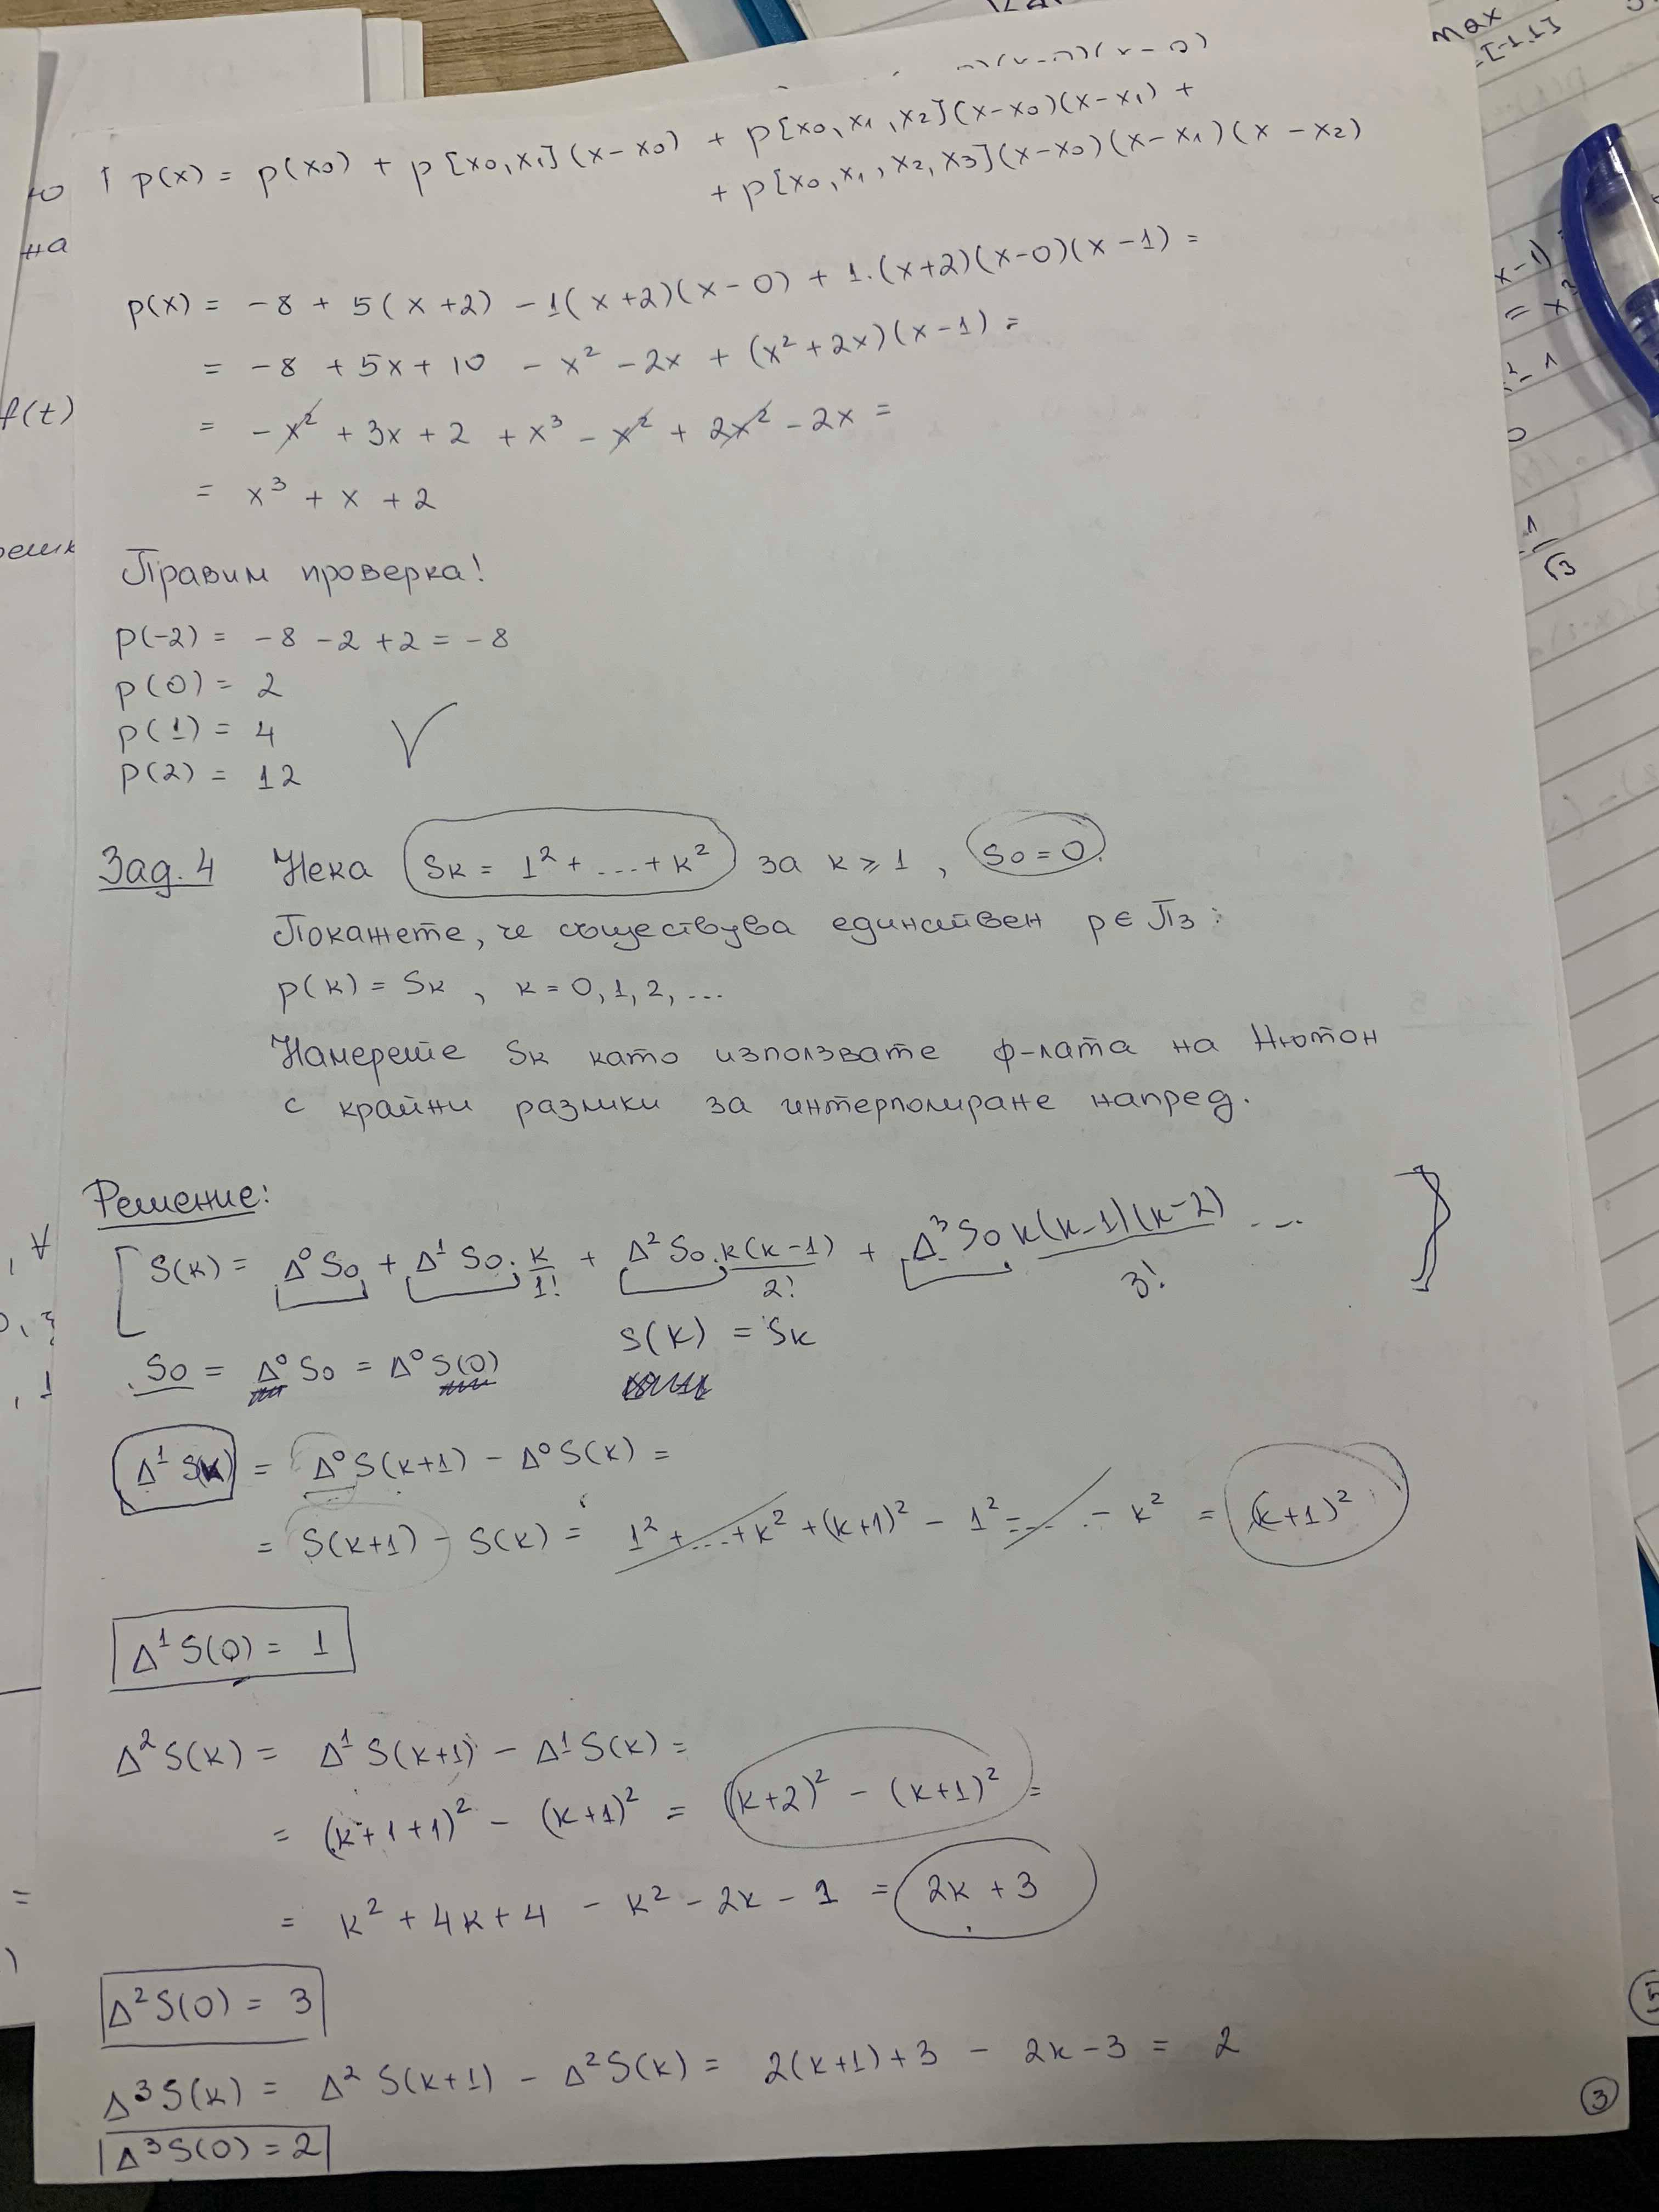 p(x) = p(x0) + p[x0,x1](x-x0) + p[x0,x1,x2](x-x0)(x-x1) +
+ p[x0,x1,x2,x3](x-x0)(x-x1)(x-x2)
p(x) = -8 + 5(x+2) - 1(x+2)(x-0) + 1.(x+2)(x-0)(x-1) =
= -8 + 5x + 10 - x² - 2x + (x²+2x)(x-1) =
= -x² + 3x + 2 + x³ - x² + 2x² - 2x =
= x³ + x + 2
Правим проверка!
p(-2) = -8 - 2 + 2 = -8
p(0) = 2
p(1) = 4
p(2) = 12
Зад. 4 Нека Sk = 1² + ... + k² за k ≥ 1, S0 = 0.
Покажете, че съществува единствен p ∈ П3:
p(k) = Sk, k = 0, 1, 2, ...
Намерете Sk като използвате ф-лата на Нютон
с крайни разлики за интерполиране напред.
Решение:
S(k) = Δ⁰S0 + Δ¹S0 . k/1! + Δ²S0 . k(k-1)/2! + Δ³S0 k(k-1)(k-2)/3! ...
S(k) = Sk
S0 = Δ⁰S0 = Δ⁰S(0)
Δ¹S(k) = Δ⁰S(k+1) - Δ⁰S(k) =
= S(k+1) - S(k) = 1² + ... + k² + (k+1)² - 1² - ... - k² = (k+1)²
Δ¹S(0) = 1
Δ²S(k) = Δ¹S(k+1) - Δ¹S(k) =
= (k+1+1)² - (k+1)² = (k+2)² - (k+1)² =
= k² + 4k + 4 - k² - 2k - 1 = 2k + 3
Δ²S(0) = 3
Δ³S(k) = Δ²S(k+1) - Δ²S(k) = 2(k+1) + 3 - 2k - 3 = 2
Δ³S(0) = 2
3
5
на
f(t)
max
[-1,1]